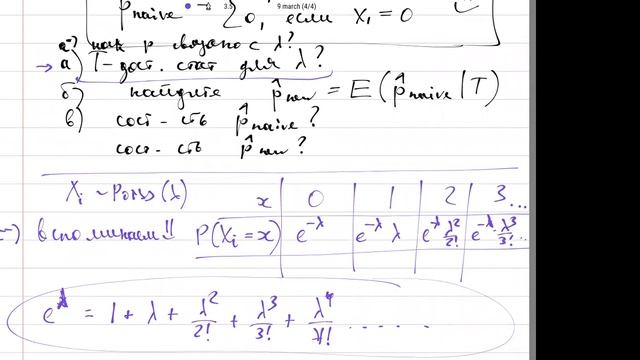 9 march (4/4)
p̂ naive = { 0, если X₁ = 0
-) как p связано с λ?
→ а) T - дост. стат для λ?
б) найдите p̂ new = E(p̂ naive | T)
в) сост-сть p̂ naive?
сост-сть p̂ new?
Xᵢ ~ Poiss(λ) x 0 1 2 3...
-) вспоминаем!! P(Xᵢ = x) e^{-λ} e^{-λ} λ e^{-λ} λ²/2! e^{-λ} λ³/3! ...
e^λ = 1 + λ + λ²/2! + λ³/3! + λ⁴/4! .....